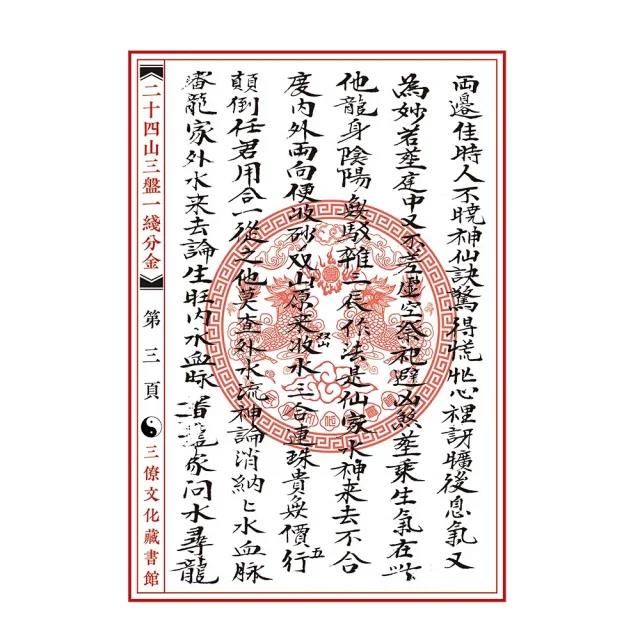 両邊住時人不曉神仙訣驚得慌忙心裡訝曠後息氣又
為妙若塟庭中又不差虛空祭祀避凶煞塟乘生氣在此
他龍身陰陽無駁雜三辰作法是仙家水神來去不合
度內外両向便收砂双山原來收水三合連珠貴無價五行
双山
顛倒任君用合一從之他莫查外水流神論消納乚水血脉
龍家外水來去論生旺內水血脉龍家問水尋龍
《二十四山三盤一綫分金》第三頁
三僚文化藏書館